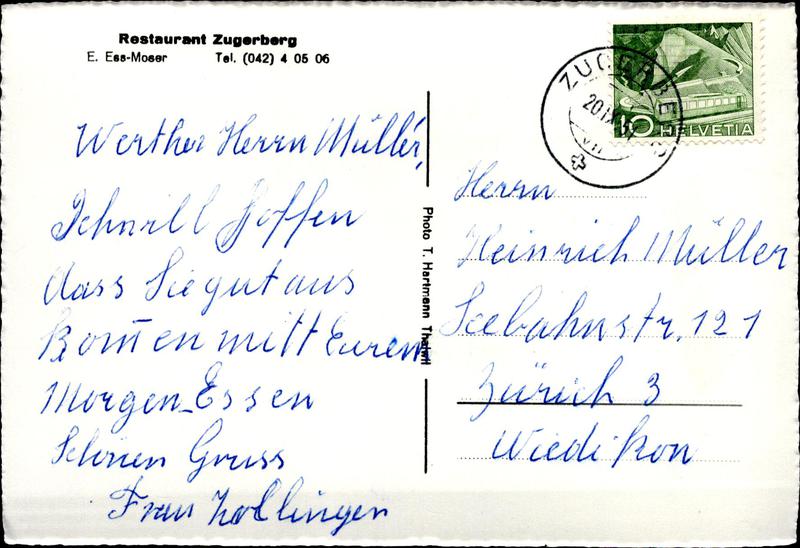 Restaurant Zugerberg
E. Ess-Moser Tel. (042) 4 05 06
Werther Herrn Müller,
Ich will hoffen
dass Sie gut aus
kom̄en mitt Eurem
Morgen-Essen
Schönen Gruss
Frau Zollingen
Photo T. Hartmann Thalwil
ZUGERBERG
20.IX.5
10 HELVETIA
Herrn
Heinrich Müller
Seebahnstr. 121
Zürich 3
Wiedikon